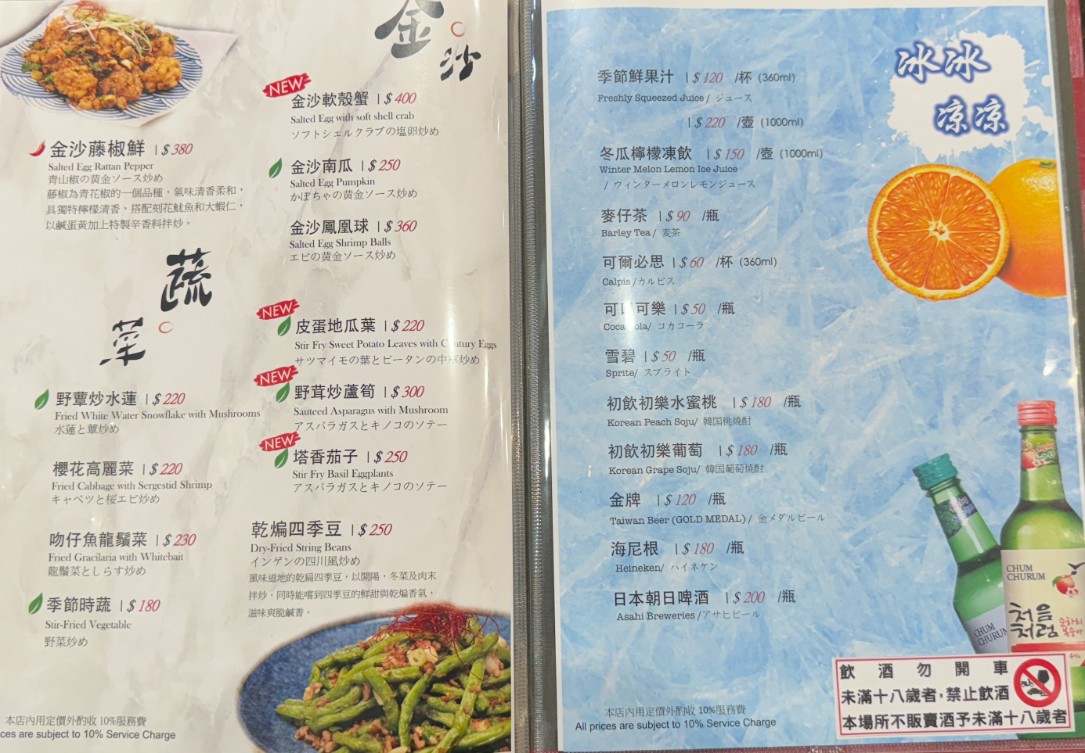 金沙
金沙藤椒鮮 | $380
Salted Egg Rattan Pepper
青山椒の黄金ソース炒め
藤椒為青花椒的一個品種，氣味清香柔和，
具獨特檸檬清香、搭配刻花魷魚和大蝦仁，
以鹹蛋黃加上特製辛香料拌炒。
NEW
金沙軟殼蟹 | $400
Salted Egg with soft shell crab
ソフトシェルクラブの塩卵炒め
金沙南瓜 | $250
Salted Egg Pumpkin
かぼちゃの黄金ソース炒め
金沙鳳凰球 | $360
Salted Egg Shrimp Balls
エビの黄金ソース炒め
蔬菜
野蕈炒水蓮 | $220
Fried White Water Snowflake with Mushrooms
水蓮と蕈炒め
櫻花高麗菜 | $220
Fried Cabbage with Sergestid Shrimp
キャベツと桜エビ炒め
吻仔魚龍鬚菜 | $230
Fried Gracilaria with Whitebait
龍鬚菜としらす炒め
季節時蔬 | $180
Stir-Fried Vegetable
野菜炒め
NEW
皮蛋地瓜葉 | $220
Stir Fry Sweet Potato Leaves with Century Eggs
サツマイモの葉とピータンの中華炒め
NEW
野茸炒蘆筍 | $300
Sauteed Asparagus with Mushroom
アスパラガスとキノコのソテー
NEW
塔香茄子 | $250
Stir Fry Basil Eggplants
アスパラガスとキノコのソテー
乾煸四季豆 | $250
Dry-Fried String Beans
インゲンの四川風炒め
風味道地的乾扁四季豆，以開陽，冬菜及肉末
拌炒，同時能嚐到四季豆的鮮甜與乾煸香氣，
滋味爽脆鹹香。
本店內用定價外酌收 10%服務費
ces are subject to 10% Service Charge
冰冰
涼涼
季節鮮果汁 | $120 /杯 (360ml)
Freshly Squeezed Juice / ジュース
| $220 /壺 (1000ml)
冬瓜檸檬凍飲 | $150 /壺 (1000ml)
Winter Melon Lemon Ice Juice
/ ウィンターメロンレモンジュース
麥仔茶 | $90 /瓶
Barley Tea / 麦茶
可爾必思 | $60 /杯 (360ml)
Calpis /カルピス
可口可樂 | $50 /瓶
Coca Cola/ コカコーラ
雪碧 | $50 /瓶
Sprite/ スプライト
初飲初樂水蜜桃 | $180 /瓶
Korean Peach Soju/ 韓国桃焼酎
初飲初樂葡萄 | $180 /瓶
Korean Grape Soju/ 韓国葡萄焼酎
金牌 | $120 /瓶
Taiwan Beer (GOLD MEDAL) / 金メダルビール
海尼根 | $180 /瓶
Heineken/ ハイネケン
日本朝日啤酒 | $200 /瓶
Asahi Breweries /アサヒビール
CHUM
CHURUM
처음
처럼
CHUM
CHURUM
飲酒勿開車
未滿十八歲者，禁止飲酒
本場所不販賣酒予未滿十八歲者
本店內用定價外酌收 10%服務費
All prices are subject to 10% Service Charge